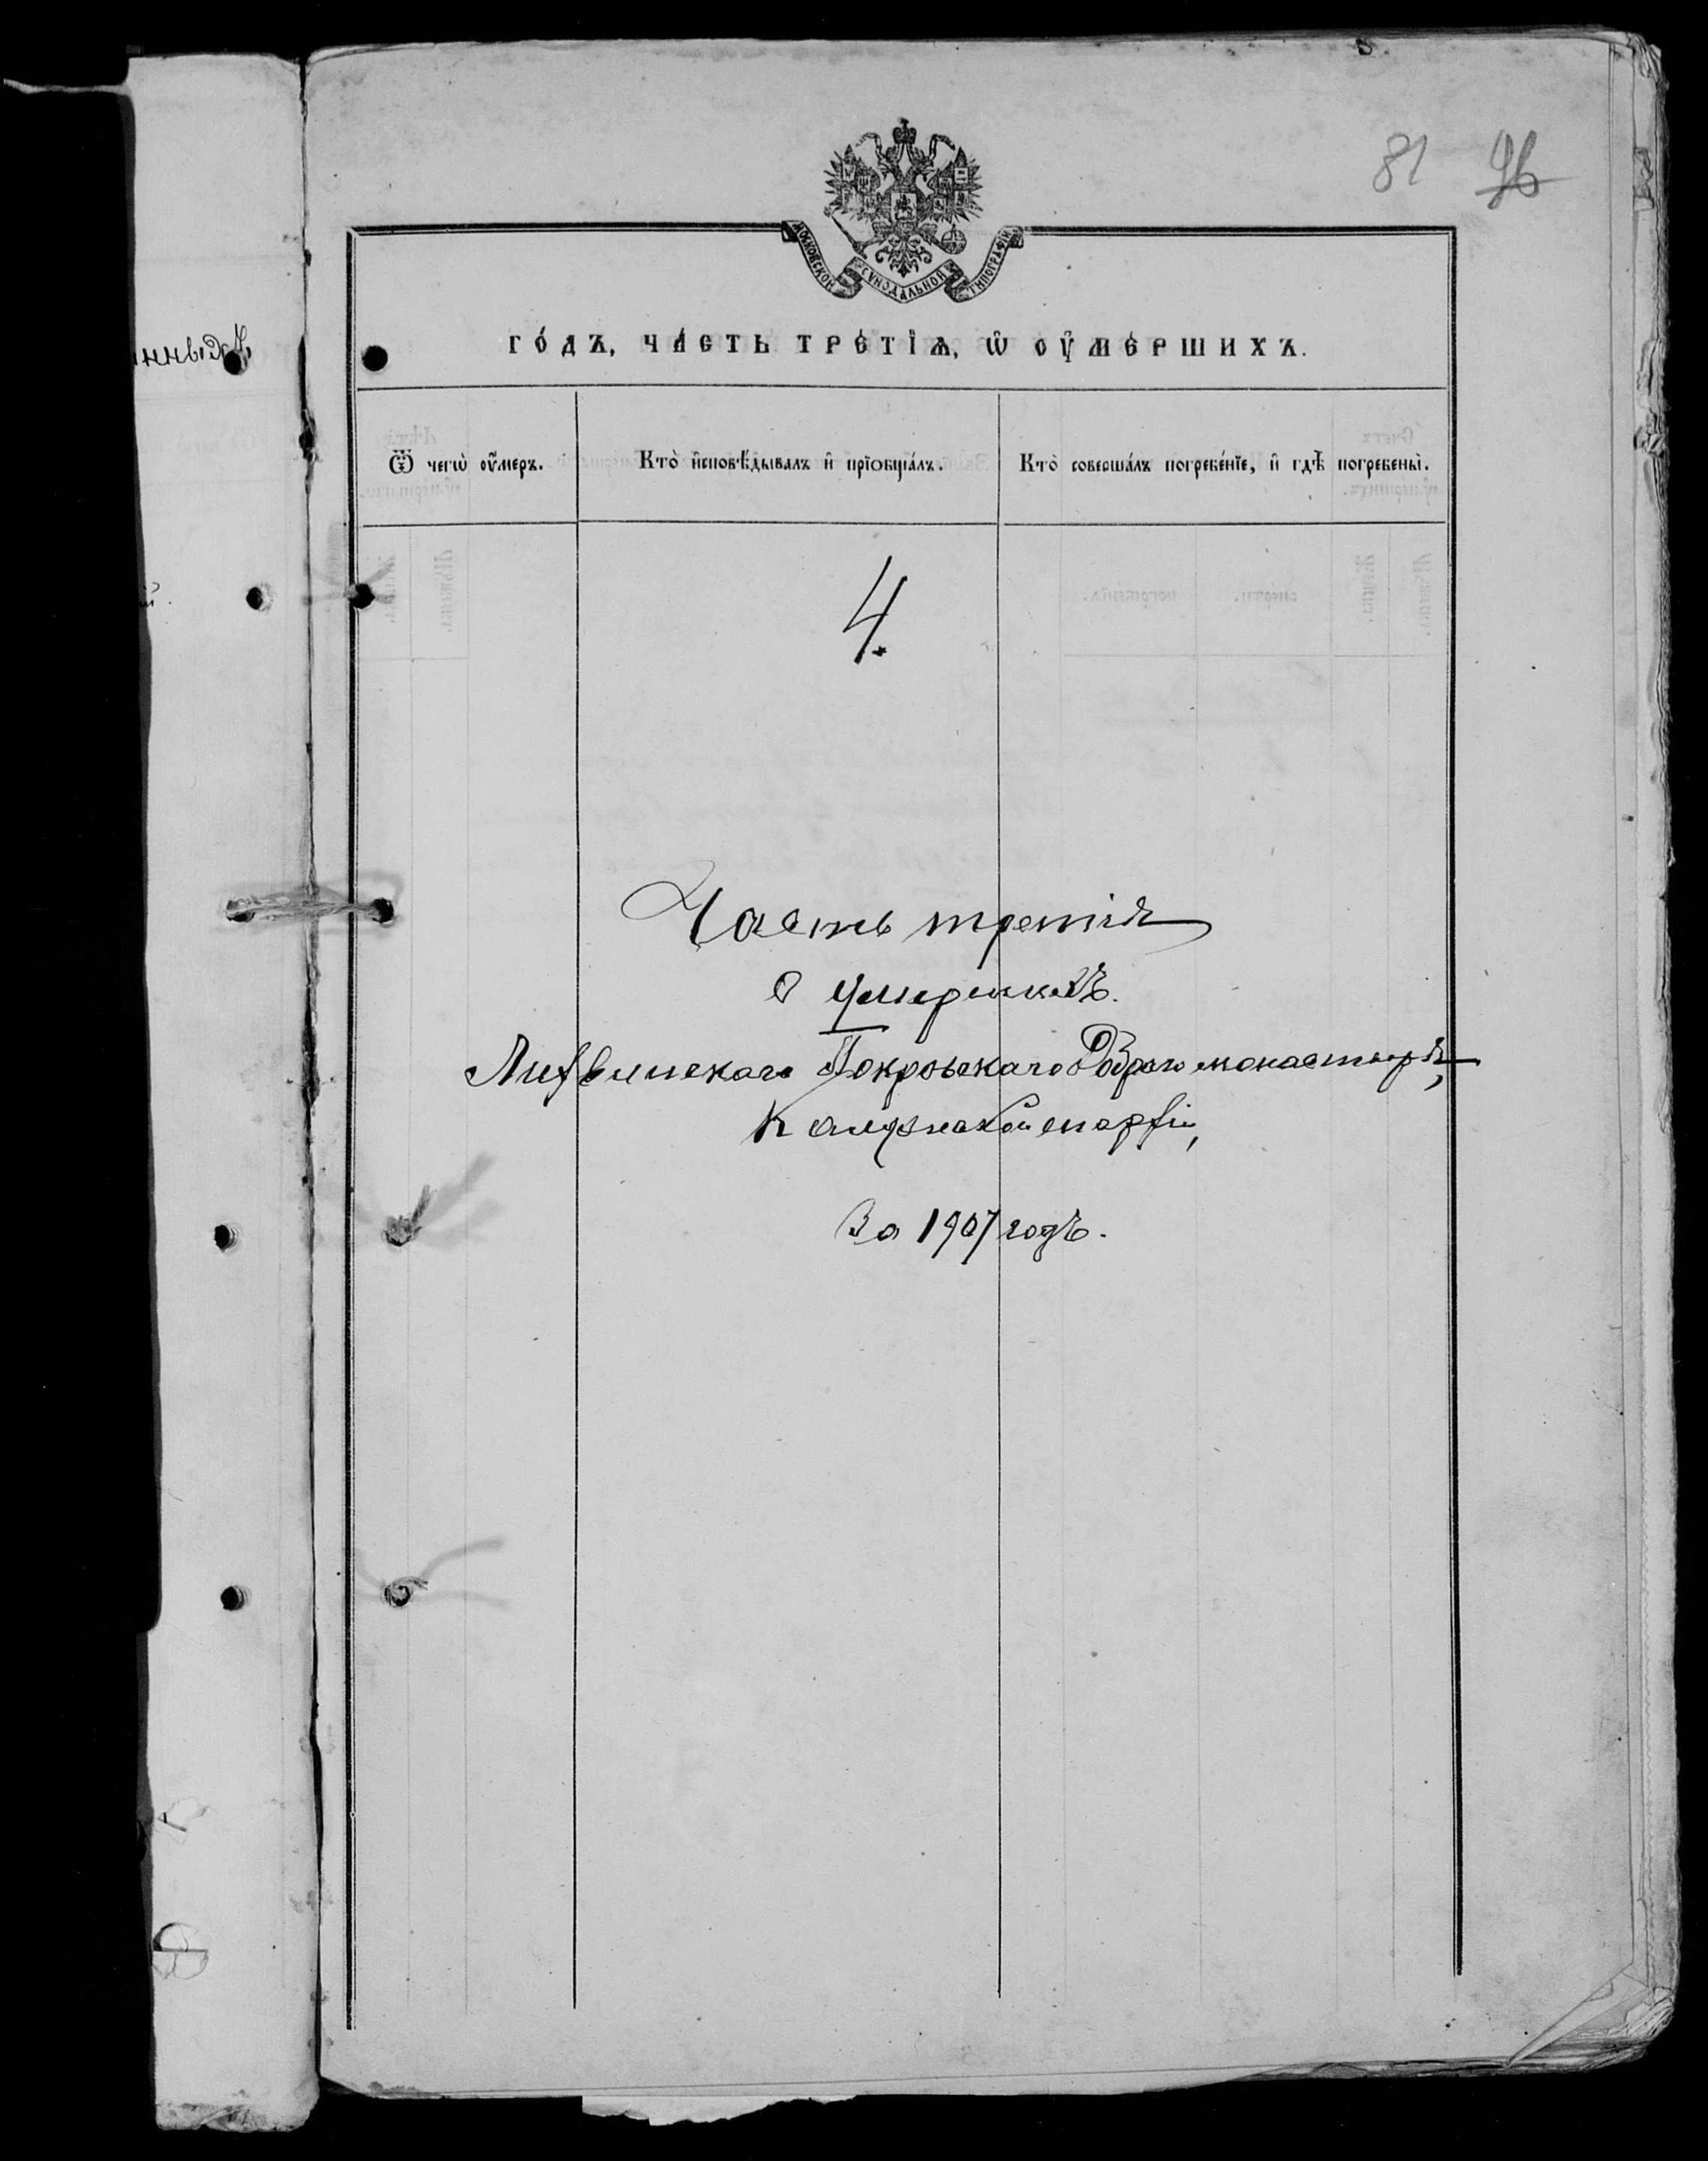 81 96
МОСКОВСКОЙ СѴНОДАЛЬНОЙ ТИПОГРАФІИ
го́дъ, ча́сть тре́тїѧ, ѡ҆ ᲂу҆ме́ршихъ.
Ѿ чегѡ̀ ᲂу҆́меръ.
Кто̀ и҆сповѣ́дывалъ и҆ прїѻбща́лъ.
Кто̀ соверша́лъ погребе́нїе, и҆ гдѣ̀ погребены̀.
4.
Часть третія
о умершихъ.
Лихвинскаго Покровскаго Добраго монастыря,
Калужской епархіи,
За 1907 годъ.